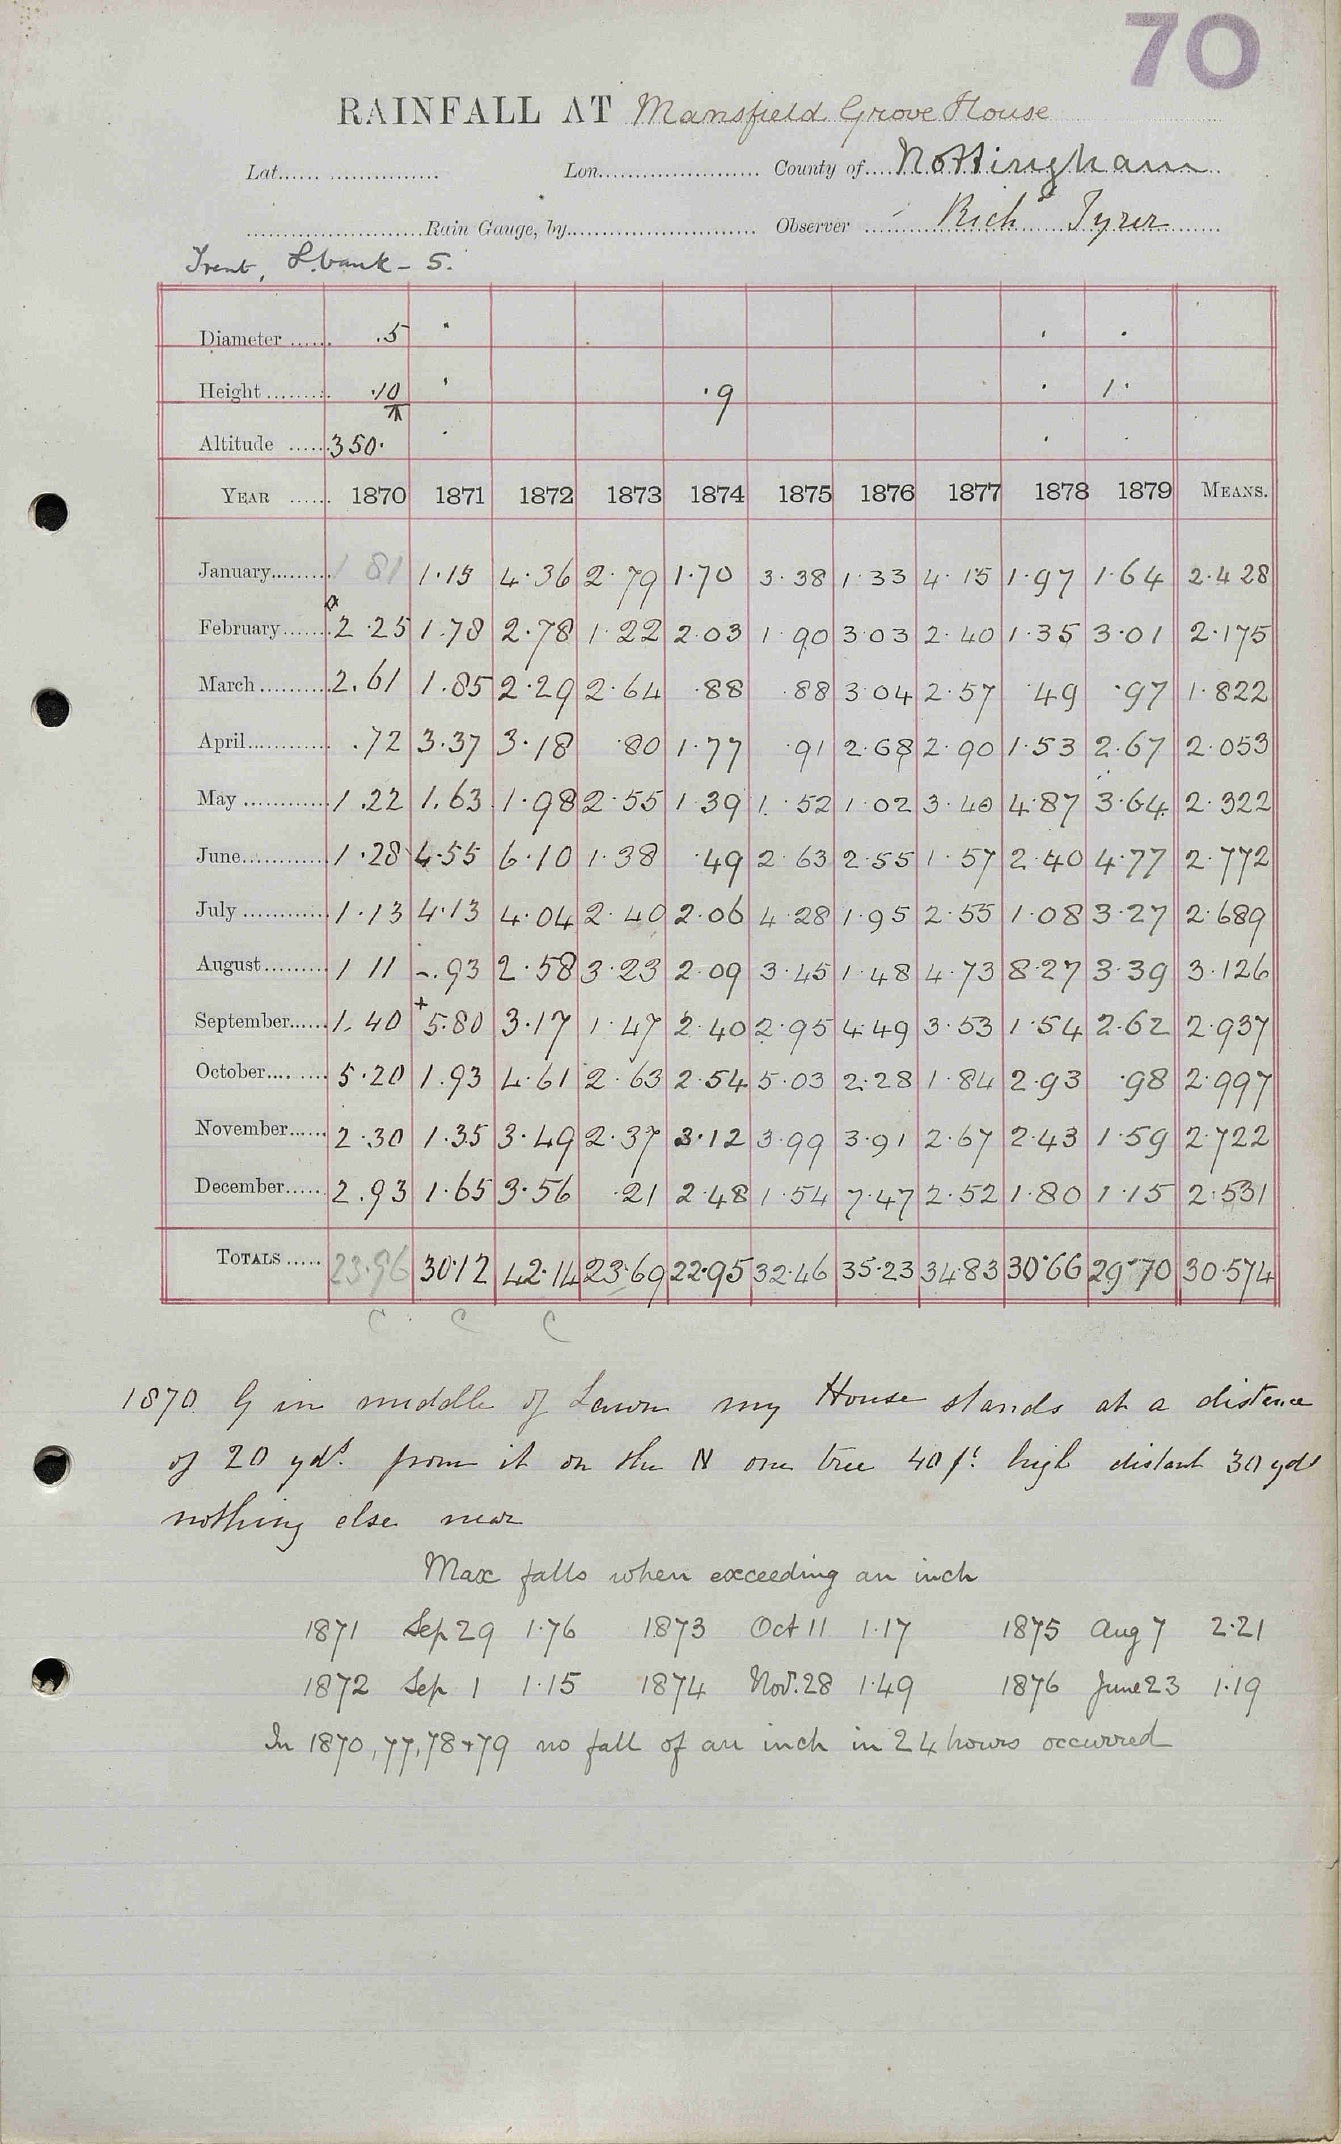 70
RAINFALL AT Mansfield Grove House
Lat. Lon. County of Nottingham
Rain Gauge, by Observer Richd Tyrer
Trent, L. bank - 5.
Diameter .5 "
Height .10 " .9 1.
Altitude 350.
YEAR 1870 1871 1872 1873 1874 1875 1876 1877 1878 1879 MEANS.
January 1 81 1.15 4.36 2.79 1.70 3.38 1.33 4.15 1.97 1.64 2.428
February 2.25 1.78 2.78 1.22 2.03 1.90 3.03 2.40 1.35 3.01 2.175
March 2.61 1.85 2.29 2.64 .88 .88 3.04 2.57 .49 .97 1.822
April .72 3.37 3.18 .80 1.77 .91 2.68 2.90 1.53 2.67 2.053
May 1.22 1.63 1.98 2.55 1.39 1.52 1.02 3.40 4.87 3.64 2.322
June 1.28 4.55 6.10 1.38 .49 2.63 2.55 1.57 2.40 4.77 2.772
July 1.13 4.13 4.04 2.40 2.06 4.28 1.95 2.55 1.08 3.27 2.689
August 1 11 -.93 2.58 3.23 2.09 3.45 1.48 4.73 8.27 3.39 3.126
September 1.40 +5.80 3.17 1.47 2.40 2.95 4.49 3.53 1.54 2.62 2.937
October 5.20 1.93 4.61 2.63 2.54 5.03 2.28 1.84 2.93 .98 2.997
November 2.30 1.35 3.49 2.37 3.12 3.99 3.91 2.67 2.43 1.59 2.722
December 2.93 1.65 3.56 .21 2.48 1.54 7.47 2.52 1.80 1.15 2.531
TOTALS 23.96 30.12 42.14 23.69 22.95 32.46 35.23 34.83 30.66 29.70 30.574
C C C
1870 G in middle of Lawn my House stands at a distance
of 20 yds. from it on the N one tree 40 ft. high distant 30 yds
nothing else near
Max falls when exceeding an inch
1871 Sep 29 1.76 1873 Oct 11 1.17 1875 Aug 7 2.21
1872 Sep 1 1.15 1874 Nov. 28 1.49 1876 June 23 1.19
In 1870, 77, 78 + 79 no fall of an inch in 24 hours occurred